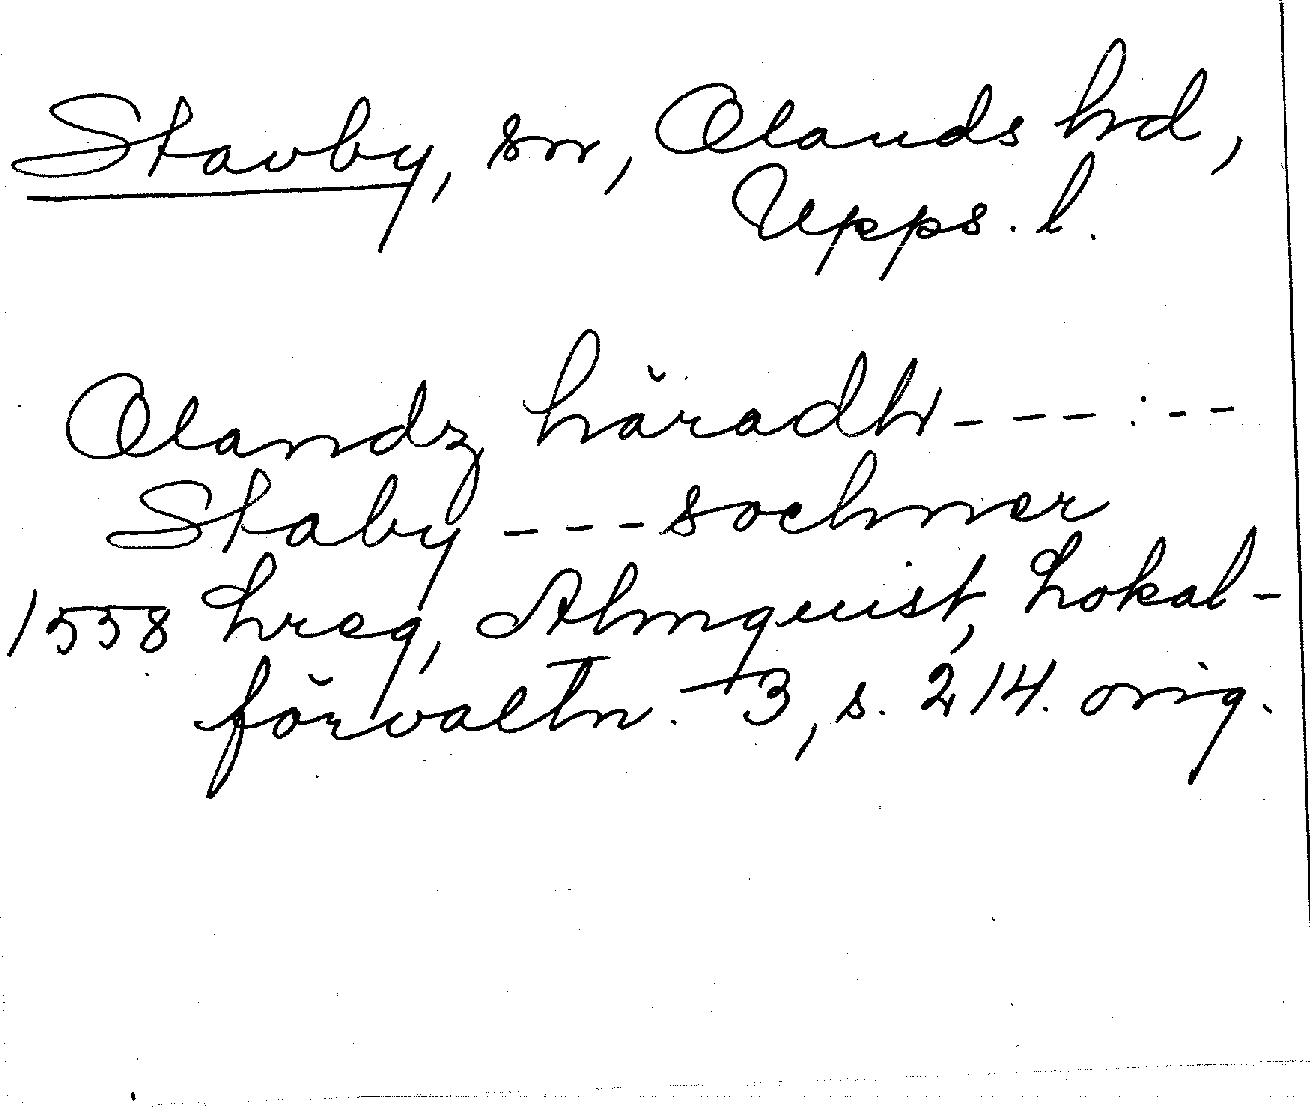 Stavby, sn, Olands hd,
Upps. l.
Olandz häradh - - - : - -
Staby - - - sochner
1558 hreg, Almquist, Lokal-
förvaltn. 3, s. 214. orig.